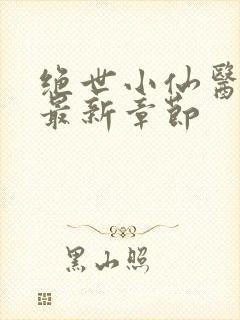 绝世小仙醫
最新章節
黑山照